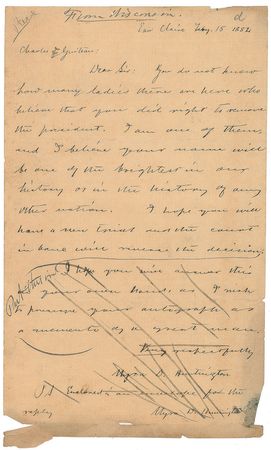 From Wisconsin.
d
Eau Claire Feby. 15 1882
Charles Guiteau:
Dear Sir: You do not know
how many ladies there are here who
believe that you did right to remove
the president. I am one of them,
and I believe your name will
be one of the brightest in our
history or in the history of any
other nation. I hope you will
have a new trial and the court
in banc will reverse the decision.
I hope you will answer this
your own hand, as I wish
to preserve your autograph as
a memento of a great man.
Very respectfully
Myra D. Huntington
Enclosed is an envelope for the
reply
Myra D. Huntington